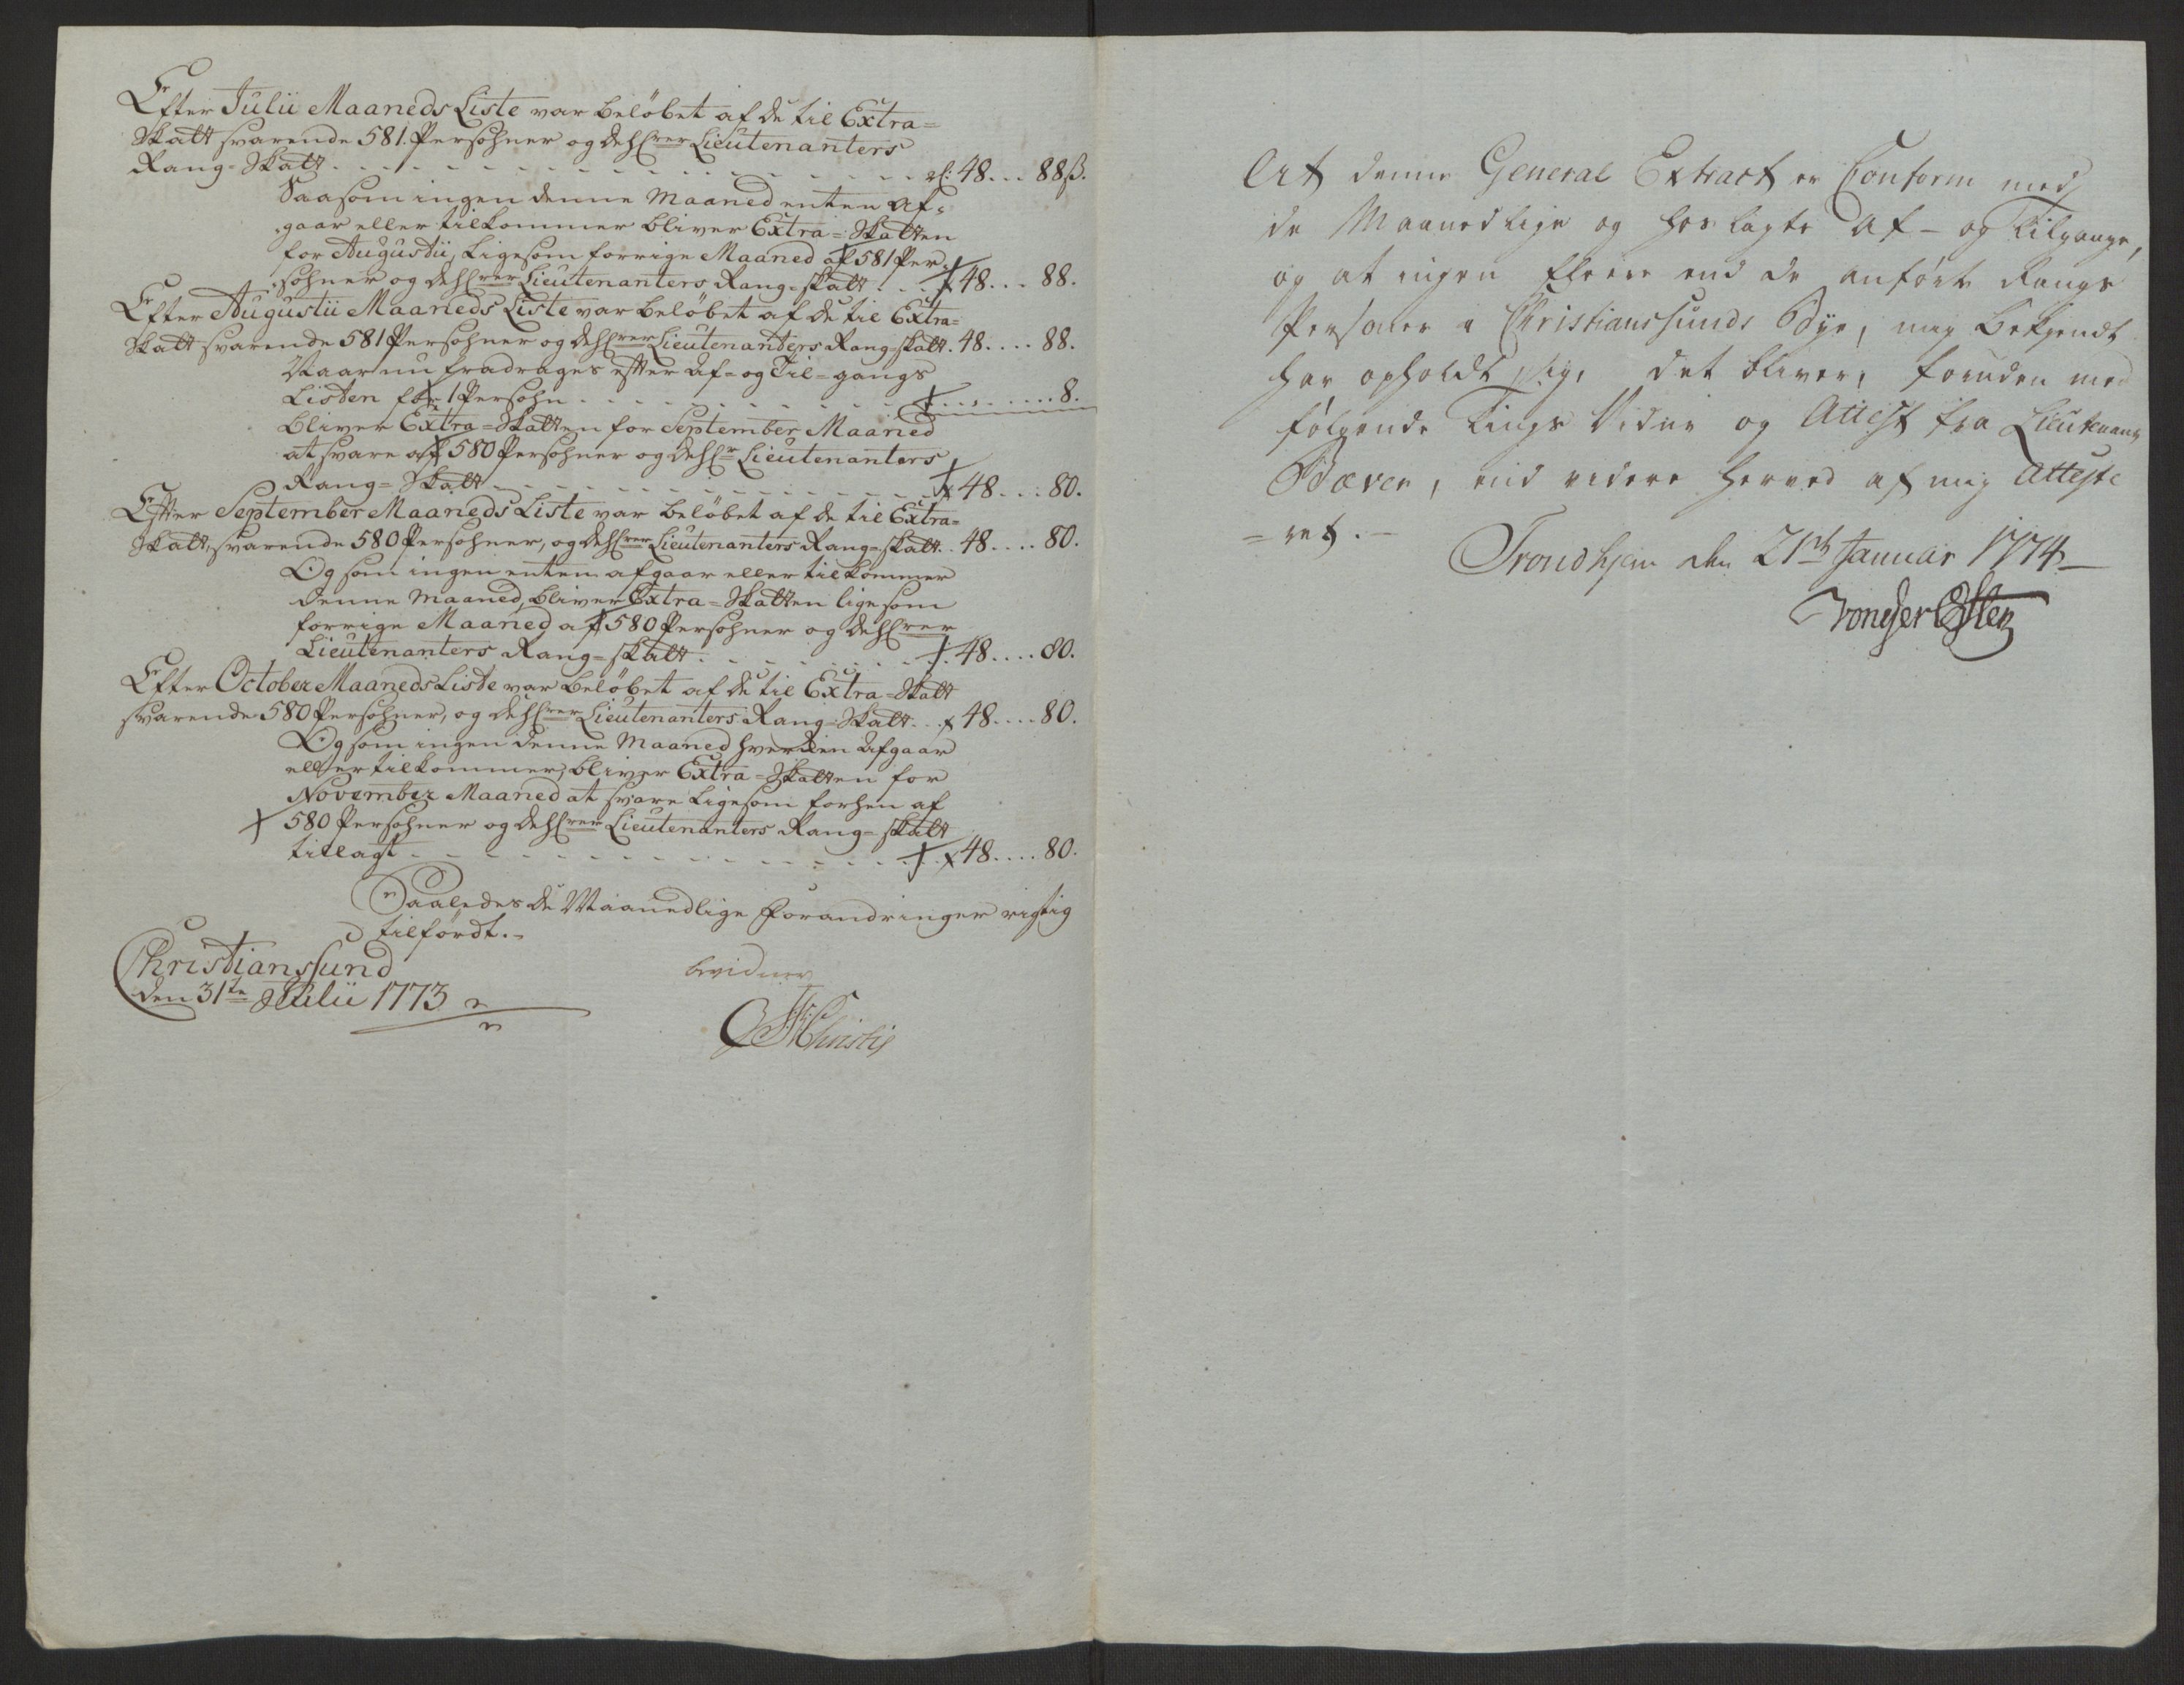 Efter Julii Maaneds Liste var beløbet af de til Extra=
Skatt svarende 581. Persohner og dehhrer Lieutenanters
Rang=Skatt . . . . . . . . . . . . . rd: 48 . . . 88 ß.
Saasom ingen denne Maaned enten Af=
gaar eller tilkommer bliver Extra=Skatten
for Augustii, Ligesom forrige Maaned af 581 Per=
sohner og dehhrer Lieutenanters Rang=skatt . . . 48 . . . 88.
Efter Augustii Maaneds Liste var beløbet af de til Extra=
Skatt svarende 581 Persohner og dehhrer Lieutenanters Rang=skatt. 48 . . . . 88.
Naar nu fradrages efter Af= og Til=gangs
Listen for 1 Persohn . . . . . . . . . . . . 8.
bliver Extra=Skatten for September Maaned
at svare af 580 Persohner og dehhr Lieutenanters
Rang=Skatt . . . . . . . . . . . . . 48 . . . 80.
Efter September Maaneds Liste var beløbet af de til Extra=
Skatt, svarende 580 Persohner, og dehhrer Lieutenanters Rang=skatt . . 48 . . . . 80.
Og som ingen enten afgaar eller tilkommer
denne Maaned, bliver Extra=Skatten ligesom
forrige Maaned af 580 Persohner og dehhrer
Lieutenanters Rang=skatt . . . . . . . . 48 . . . . 80.
Efter October Maaneds Liste var beløbet af de til Extra=Skatt
svarende 580 Persohner, og dehhrer Lieutenanters Rang=Skatt . . . 48 . . . . 80.
Og som ingen denne Maaned hverken Afgaar
eller tilkommer, bliver Extra=Skatten for
November Maaned at svare Ligesom forhen af
580 Persohner og dehhrer Lieutenanters Rang=skatt
tillagt . . . . . . . . . . . . . 48 . . . . 80.
Saaledes de Maanedlige Forandringer rigtig
tilfördt.
Christianssund
den 31te Julii 1773
bevidner
Christie
At denne General Extract er Conform med
de Maanedlige og hoslagte Af- og Tilgange,
og at ingen fleere end de anførte Rangs
Personer i Christianssunds Bye, mig bekjendt
har opholdt sig, det bliver, foruden med
følgende Tings Vidne og Attest fra Lieutenant
Bæver, end videre herved af mig Atteste
=ret. -
Trondhjem den 21de Januar 1774